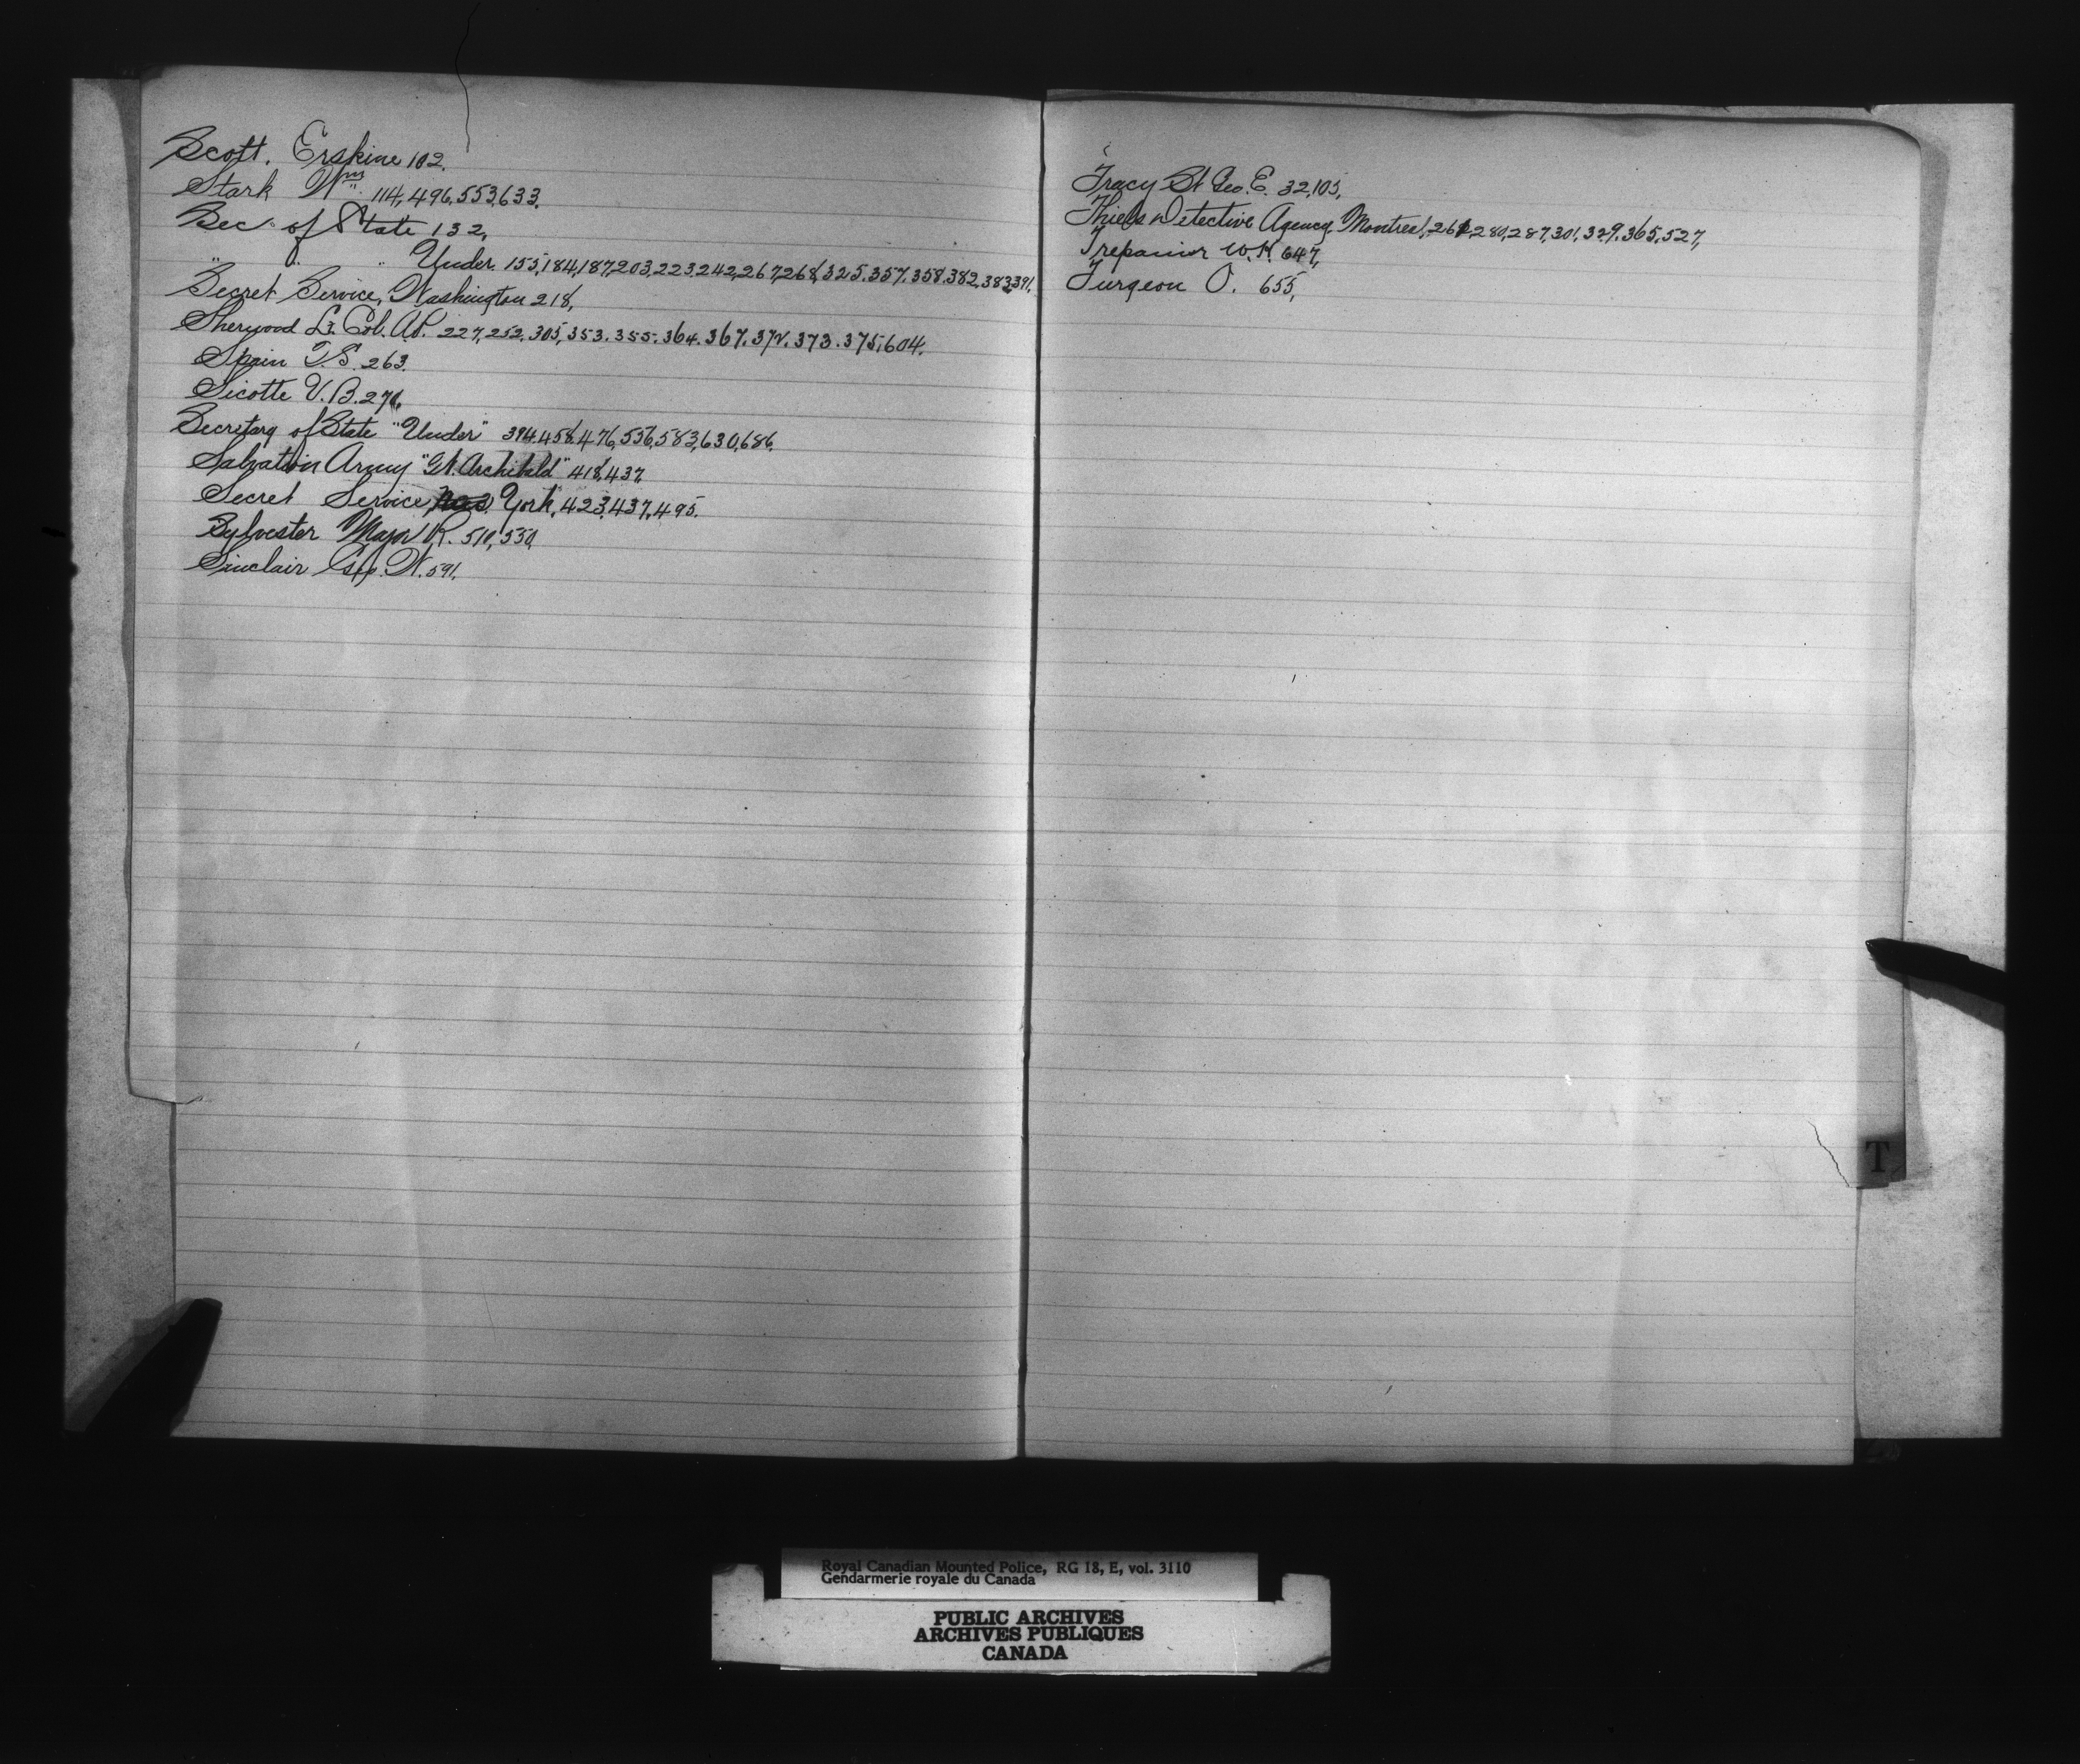 Scott. Erskine 102.
Stark Wm 114, 496, 553, 633.
Sec. of State 132,
" " " Under. 155, 184, 187, 203, 223, 242, 267, 268, 325. 357. 358. 382. 383, 391.
Secret Service, Washington 218,
Sherwood Lt. Col. A.P. 227, 252, 305, 353. 355. 364. 367. 372. 373. 375, 604.
Spain T.S. 263.
Sicotte V.B.
Secretary of State "Under" 394. 458, 476, 556, 583, 630, 686.
Salvation Army "Archibald" 418, 437,
Secret Service, New York, 423, 437, 495.
Sylvester Major R. 510, 550,
Sinclair W. 591,
Tracy St Geo. E. 32, 105,
Thiels Detective Agency, Montreal, 280, 287, 301, 329, 365, 527,
Trepanier W.H. 647,
Turgeon O. 655,
T
Royal Canadian Mounted Police, RG 18, E, vol. 3110
Gendarmerie royale du Canada
PUBLIC ARCHIVES
ARCHIVES PUBLIQUES
CANADA